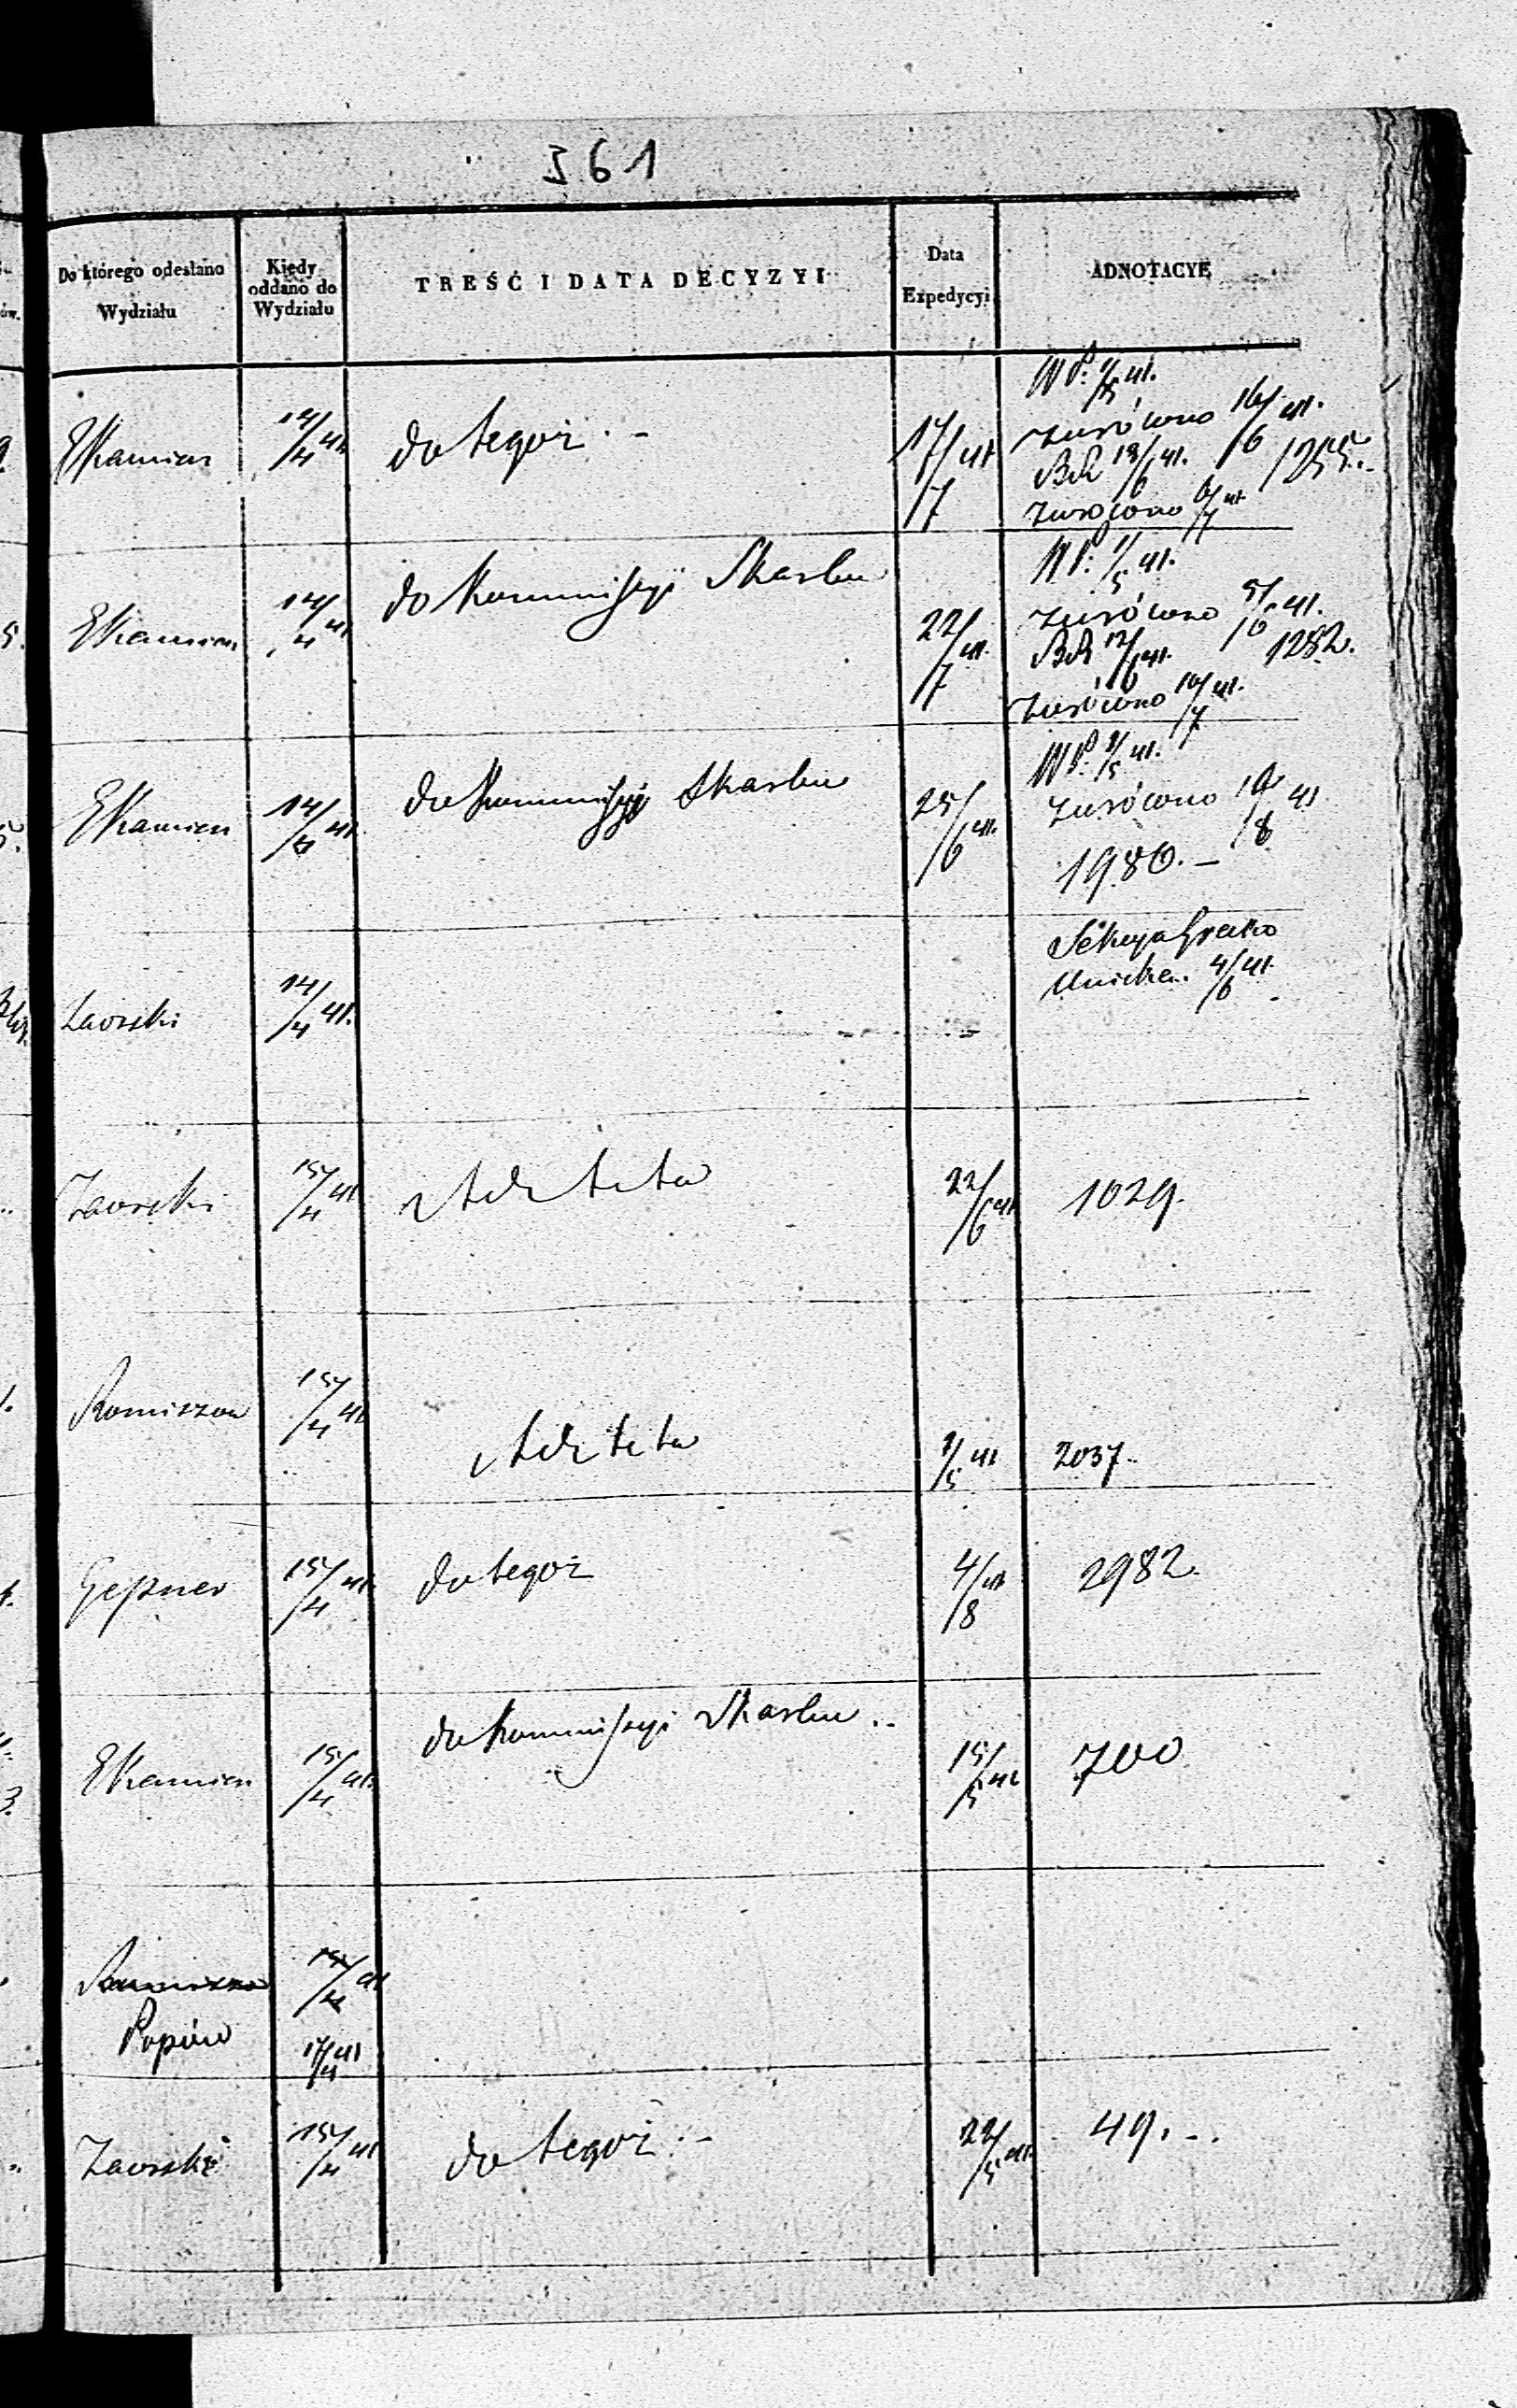 361
Do którego odesłano Wydziału
Kiedy oddano do Wydziału
TREŚĆ I DATA DECYZYI
Data Expedycyi
ADNOTACYE
EKamien 14/4 41 do tegoż.- 17/7 41
WP. 1/5 41.
zwrócono 16/6 41.
BR 18/6 41. 1255.
zwrócono 6/7 41
EKamien 14/4 41 do Kommissyi Skarbu 22/7 41.
WP. 1/5 41.
zwrócono 5/6 41.
BR 12/6 41. 1282.
zwrócono 10/7 41.
EKamien 14/4 41 do Kommissyi Skarbu 25/6 41.
WP. 1/5 41.
zwrócono 41
1980.-
Zaorski 14/4 41.
Sekcya Grecko
Unicka. 4/6 41.
Zaorski 15/4 41 22/6 41 1029.
Romiszow 15/4 41
1/5 41 2037.
Gessner 15/4 41. do tegoż 4/8 41 2982.
EKamien 15/4 41. do Kommissyi Skarbu.. 15/5 41 700
15/4 41
Popów 17/4 41
Zaorski 15/4 41 do tegoż.- 22/5 41. 49.-.